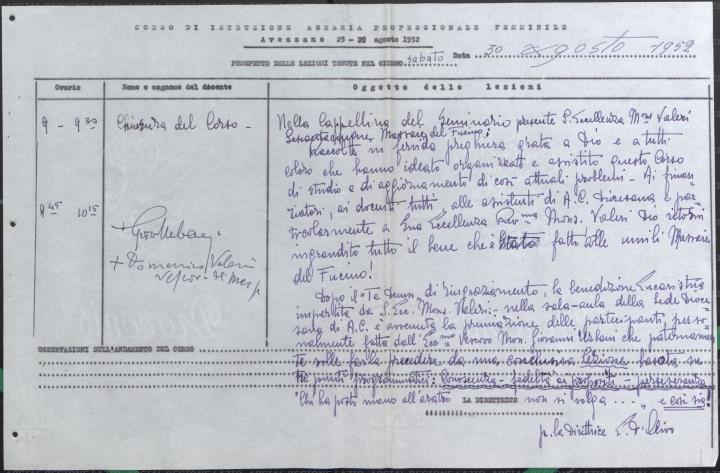 CORSO DI ISTRUZIONE AGRARIA PROFESSIONALE FEMMINILE
Avezzano 25 - 30 agosto 1952
PROSPETTO DELLE LEZIONI TENUTE NEL GIORNO sabato Data 30 Agosto 1952
Orario Nome e cognome del docente Oggetto delle lezioni
9 - 9 30 Chiusura del Corso - Nella Cappellina del Seminario presente S. Eccellenza Mons Valeri
Massaie del Fucino:
raccolte in fervida preghiera grata a Dio e a tutti
coloro che hanno ideato organizzato e assistito questo Corso
di studio e di aggiornamento di così attuali problemi - Ai finan
9 45 10 15 ziatori, ai docenti tutti, alle assistenti di A.C. Diocesana e par
ticolarmente a Sua Eccellenza Rev ma Mons. Valeri Dio
+ Giov Urbani ingrandito tutto il bene che è stato fatto alle umili Massaie
+ Domenico Valeri del Fucino!
Dopo il "Te Deum" di ringraziamento, la benedizione Eucaristica
impartita da S. Ecc. Mons. Valeri - nella sala-aula della Sede Dioce
sana di A.C. è avvenuta la premiazione delle partecipanti, perso
nalmente fatta dall' Ecc mo Vescovo Mons. Giovanni Urbani che paternamen
OSSERVAZIONI SULL'ANDAMENTO DEL CORSO
te volle farla precedere da una conclusiva lezione basata su
tre punti programmatici: Conoscenza - fedeltà ai propositi - perseveranza
"Chi ha posto mano all'aratro non si volga...." e così sia!
LA DIRETTRICE
p. la Direttrice